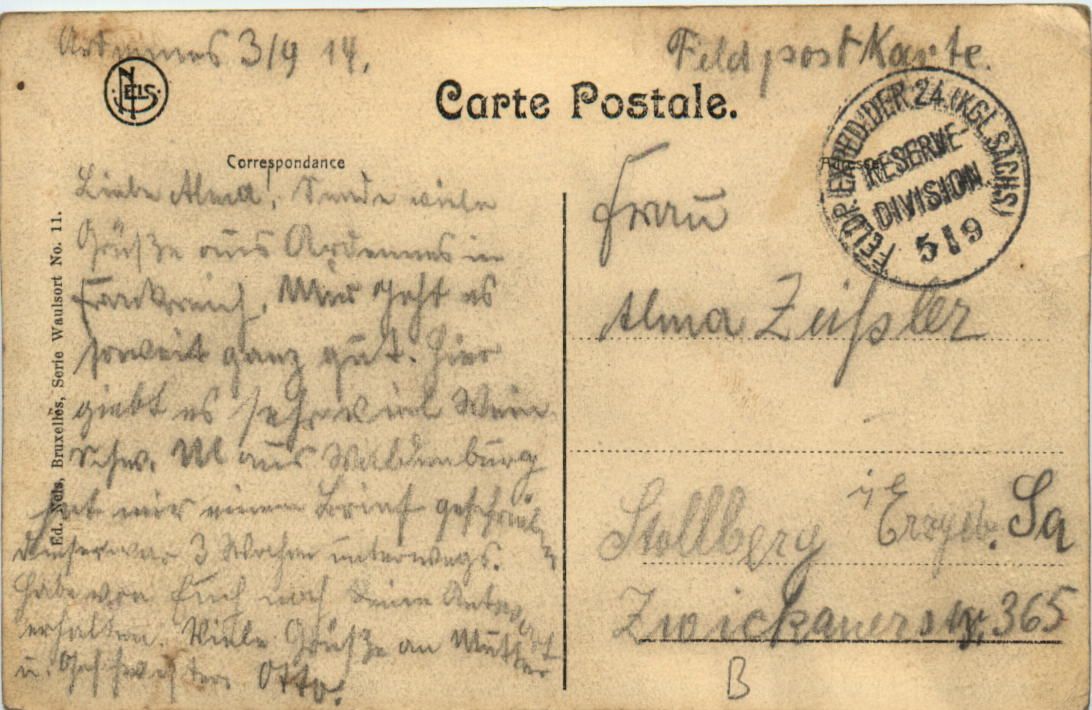 Ardennes 3/9 14.
Feldpost Karte.
NELS
Carte Postale.
Correspondance
FELDP. EXPED. DER 24. (KGL. SÄCHS)
RESERVE-
DIVISION
5 9
Liebe Alma! Sende viele
Grüße aus Ardennes in
Frankreich. Mir geht es
soweit ganz gut. Hier
giebt es sehr viel Wein
aus Waldenburg
hat mir einen Brief geschrieben
dieser war 3 Wochen unterwegs.
Habe von Euch noch keine Antwort
erhalten. Viele Grüße an Mutter
u. Geschwister. Otto.
Ed. Nels, Bruxelles, Serie Waulsort No. 11.
Frau
Alma Zeißler
Stollberg i. Erzgeb. Sa
Zwickauerstr. 365
B